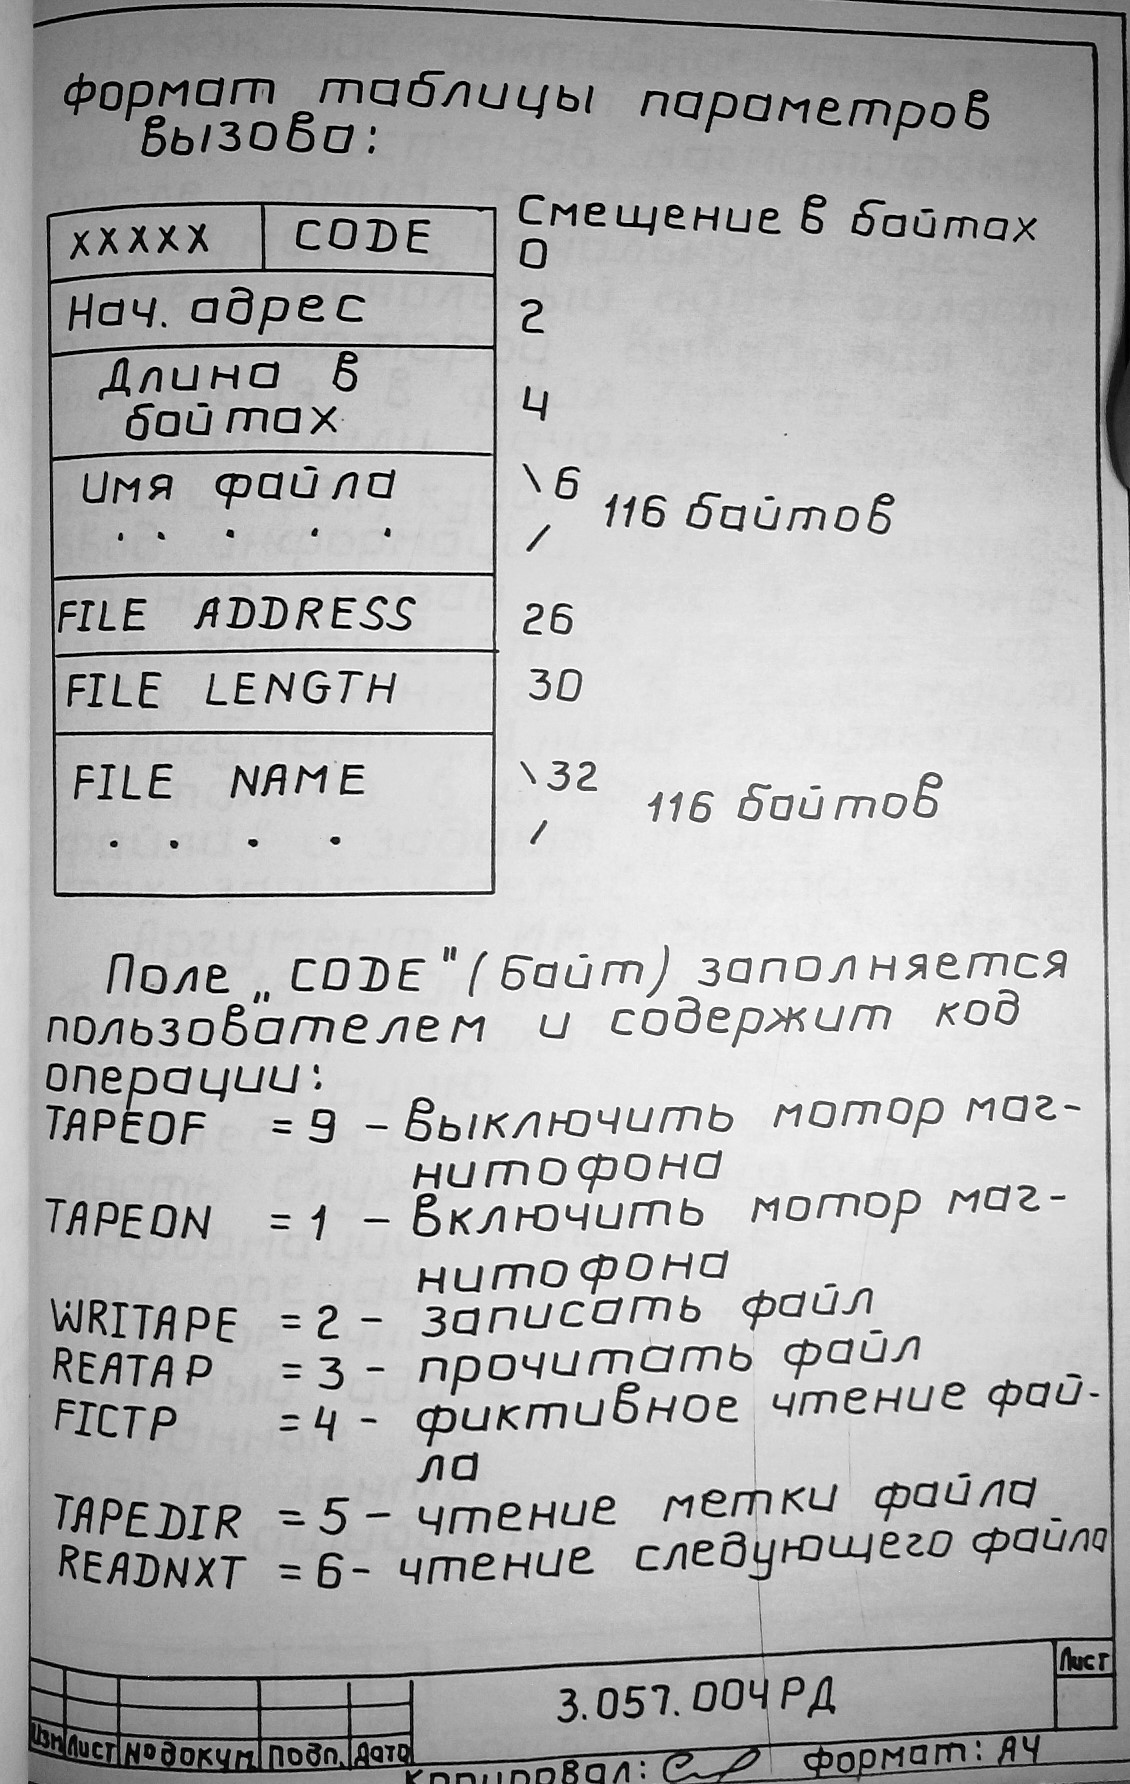 формат таблицы параметров
вызова:
Смещение в байтах
XXXXX CODE 0
Нач. адрес 2
Длина в
байтах 4
Имя файла \6 116 байтов
. . . . . /
FILE ADDRESS 26
FILE LENGTH 30
FILE NAME \32 116 байтов
. . . . /
Поле „CODE" (байт) заполняется
пользователем и содержит код
операции:
TAPEOF = 9 - выключить мотор маг-
нитофона
TAPEON = 1 - включить мотор маг-
нитофона
WRITAPE = 2 - записать файл
REATAP = 3 - прочитать файл
FICTP = 4 - фиктивное чтение фай-
ла
TAPEDIR = 5 - чтение метки файла
READNXT = 6 - чтение следующего файла
Лист
3.057.004РД
Изм Лист № докум подп. Дата
Копировал: формат: А4